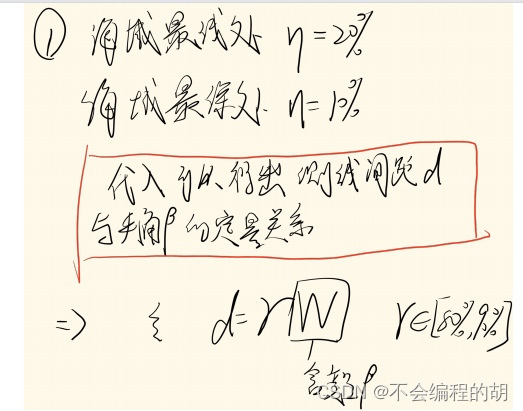 ① 海域最浅处 η=20%
海域最深处 η=10%
代入可以得出 测线间距d
与夹角β的定量关系
=> 令 d=r W r∈[80%,90%]
含有β
CSDN @不会编程的胡